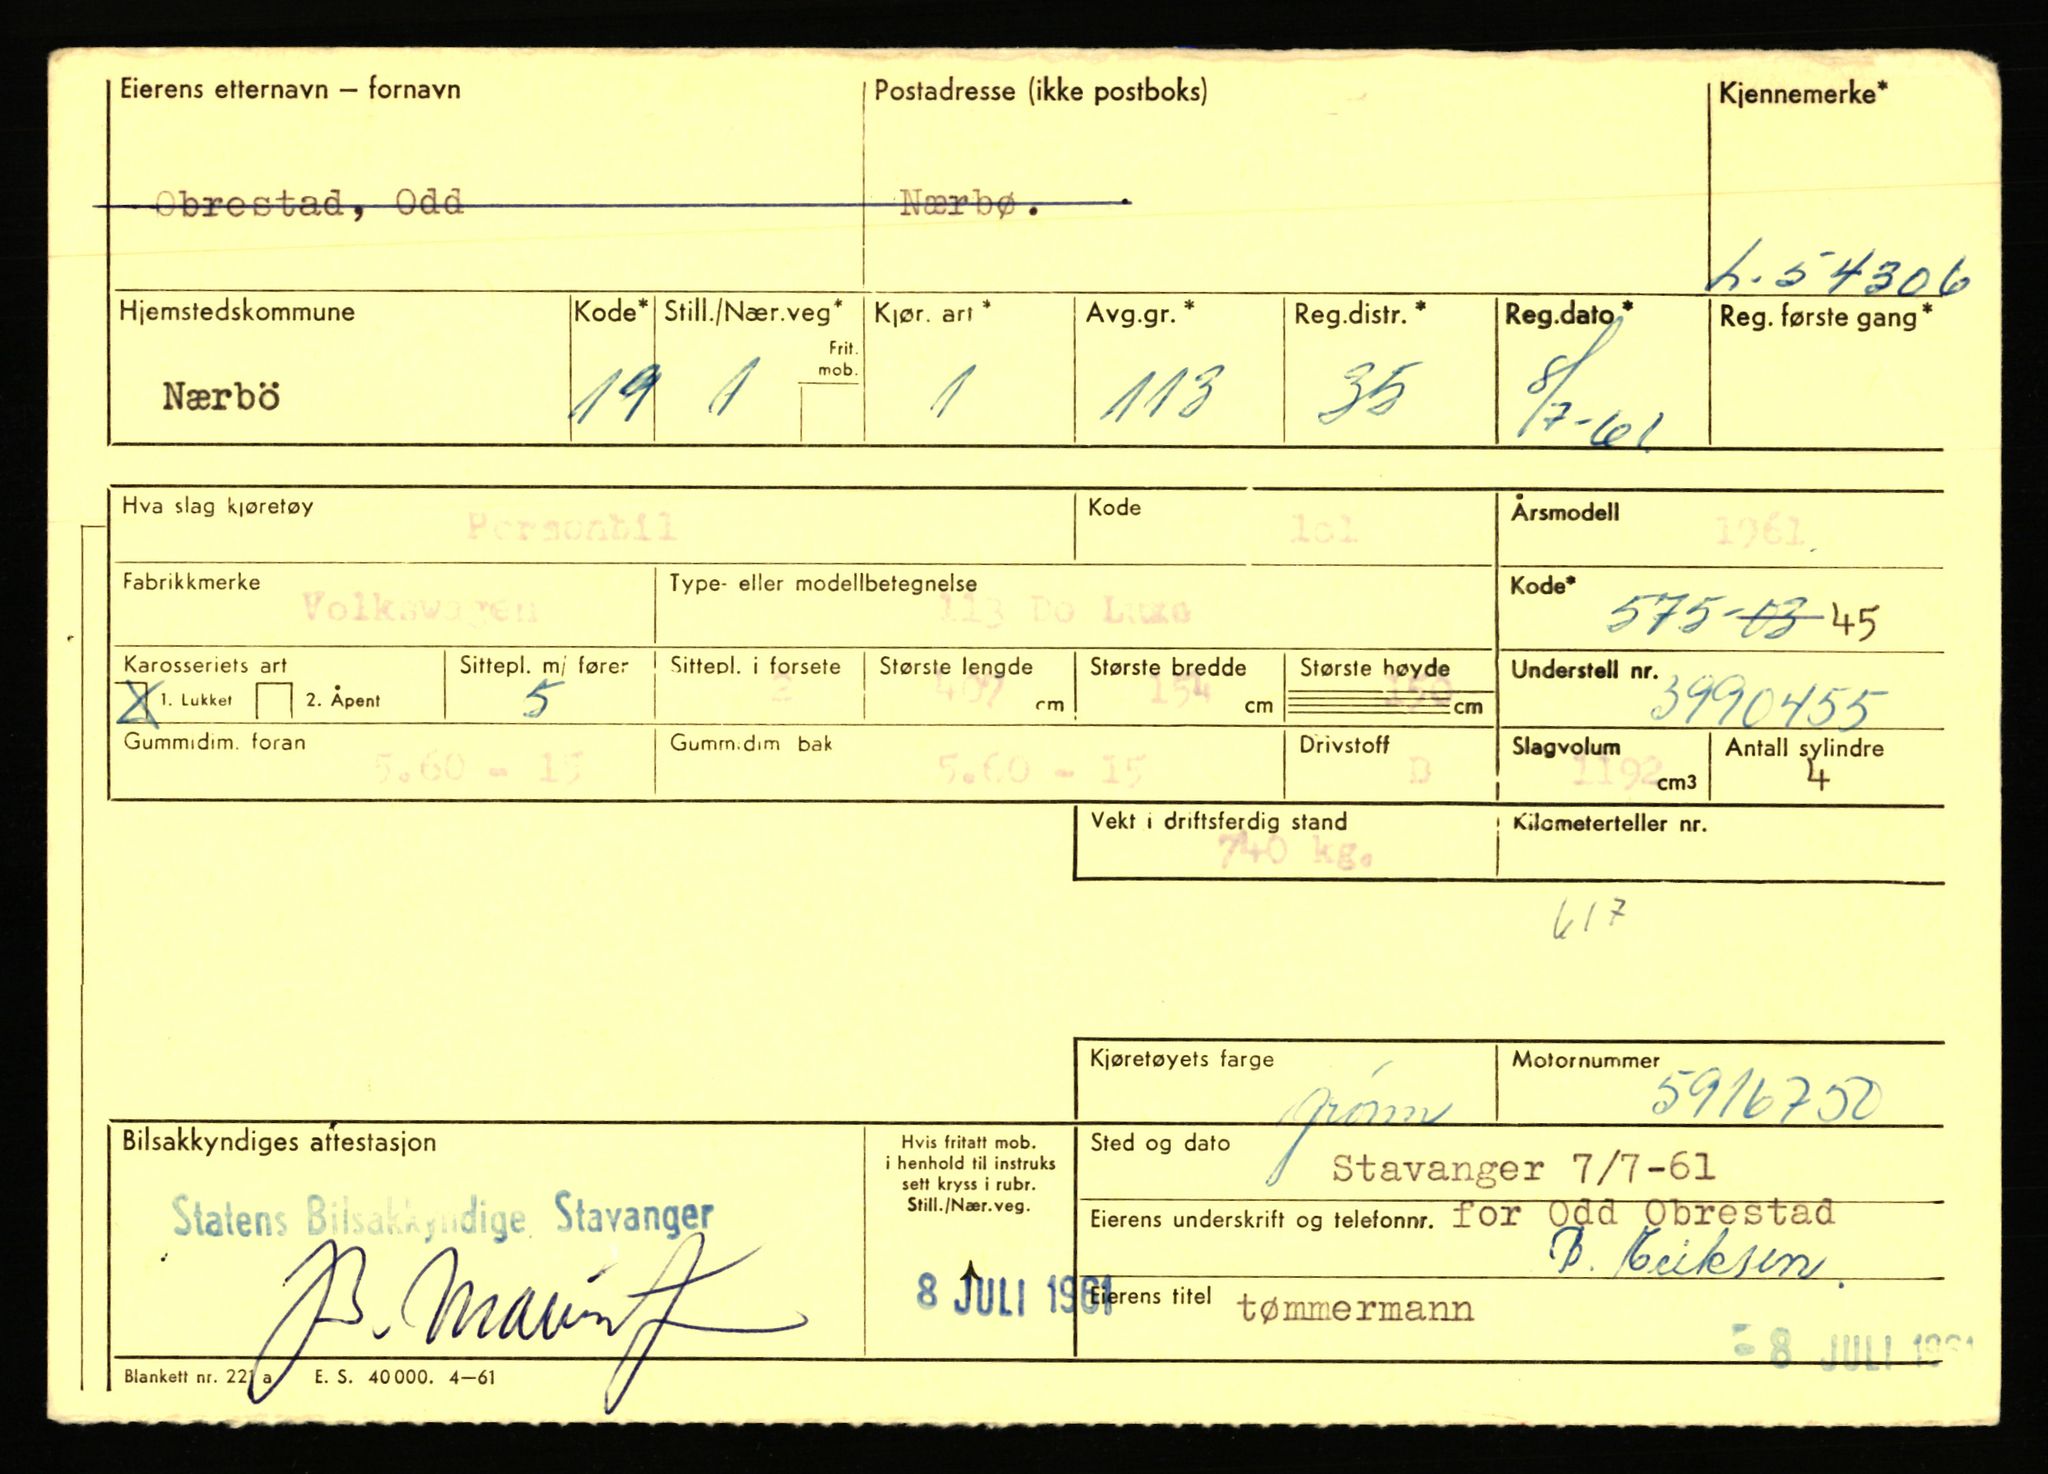 Eierens etternavn – fornavn
Postadresse (ikke postboks)
Kjennemerke*
Obrestad, Odd
Nærbø.
L-54306
Hjemstedskommune
Kode*
Still./Nær.veg*
Kjør. art *
Avg.gr. *
Reg.distr. *
Reg.dato*
Reg. første gang*
Frit. mob.
Nærbö
19
1
1
113
35
8/7-61
Hva slag kjøretøy
Personbil
Kode
101
Årsmodell
1961
Fabrikkmerke
Volkswagen
Type- eller modellbetegnelse
113 De Luxe
Kode*
575-03 45
Karosseriets art
X 1. Lukket
2. Åpent
Sittepl. m/ fører
5
Sittepl. i forsete
2
Største lengde
407 cm
Største bredde
154 cm
Største høyde
150 cm
Understell nr.
3990455
Gummidim. foran
5.60 - 15
Gummidim bak
5.60 - 15
Drivstoff
B
Slagvolum
1192 cm3
Antall sylindre
4
Vekt i driftsferdig stand
740 kg.
Kilometerteller nr.
617
Kjøretøyets farge
grønn
Motornummer
5916750
Bilsakkyndiges attestasjon
Statens Bilsakkyndige, Stavanger
Hvis fritatt mob.
i henhold til instruks
sett kryss i rubr.
Still./Nær.veg.
8 JULI 1961
Sted og dato
Stavanger 7/7-61
Eierens underskrift og telefonnr. for Odd Obrestad
B. Eriksen.
Eierens titel tømmermann
- 8 JULI 1961
Blankett nr. 221 a E. S. 40 000. 4–61